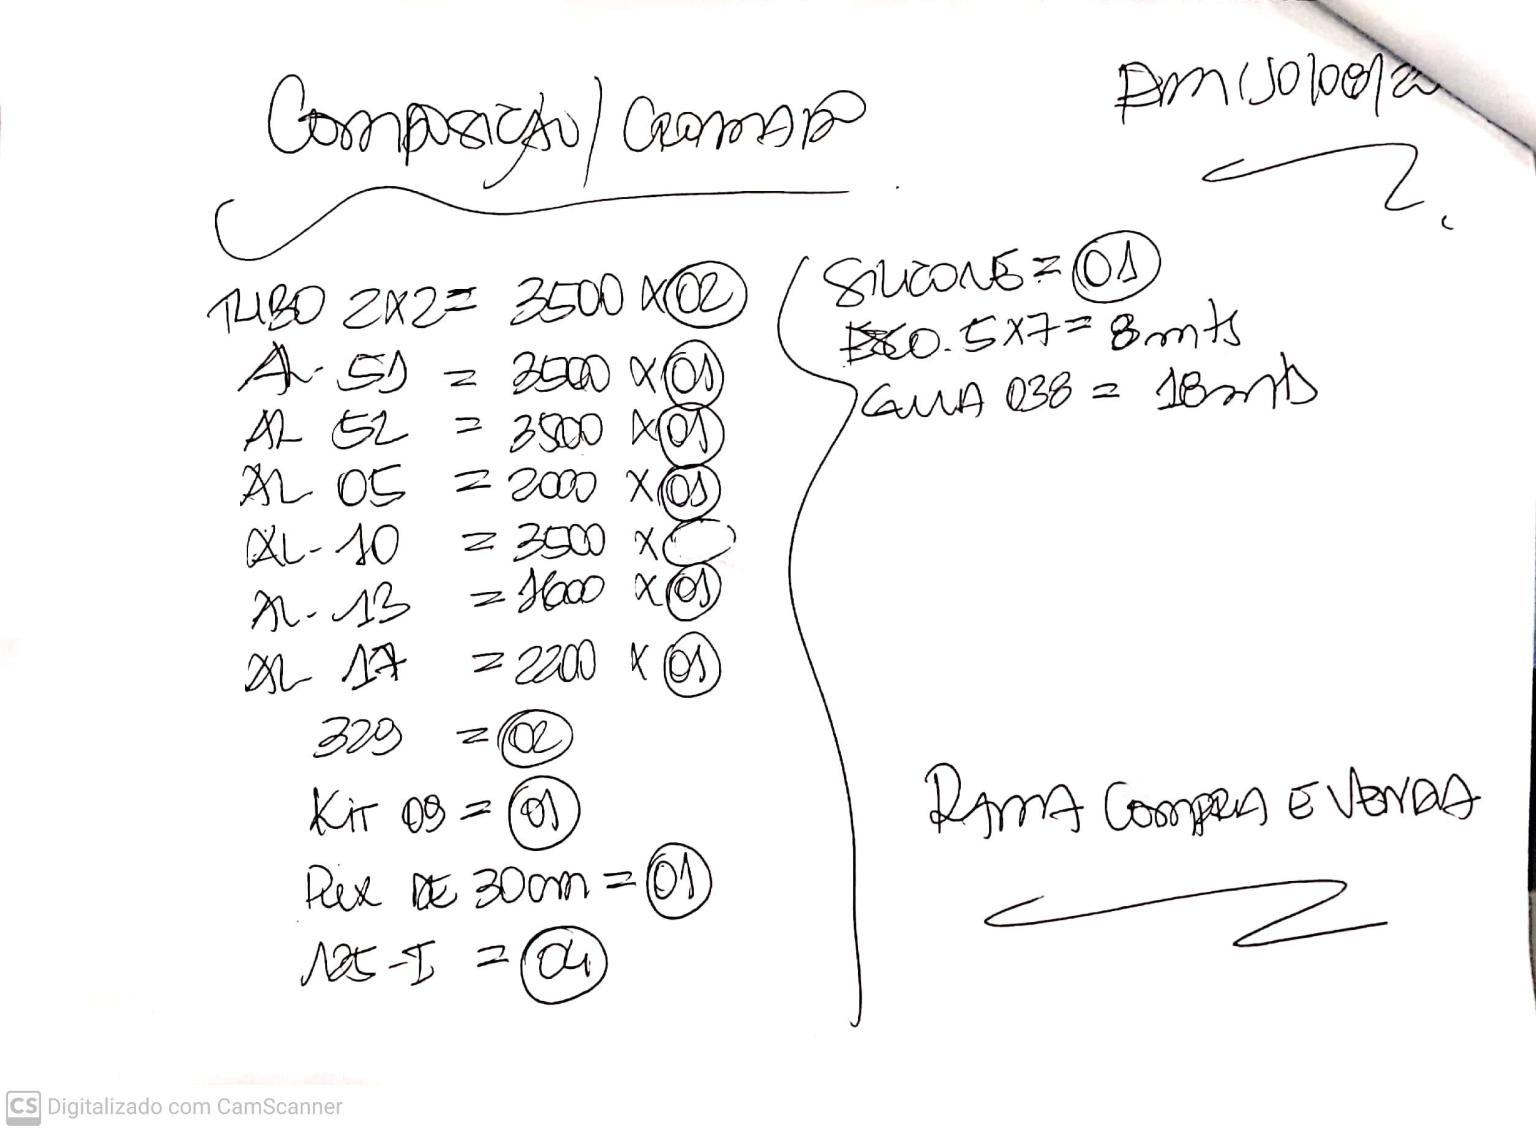 Composição / Cromado
Em 10/08/2
TUBO 2x2 = 3500 x 02
AL 51 = 3500 x 01
AL 52 = 3500 x 01
AL 05 = 2000 x 01
AL-10 = 3500 x
AL-13 = 1600 x 01
AL 17 = 2200 x 01
329 = 02
Kit 09 = 01
Pux DE 30cm = 01
125-I = 04
SILICONE = 01
5x7 = 8mts
GUIA 038 = 18mts
RAMA COMPRA E VENDA
CS Digitalizado com CamScanner